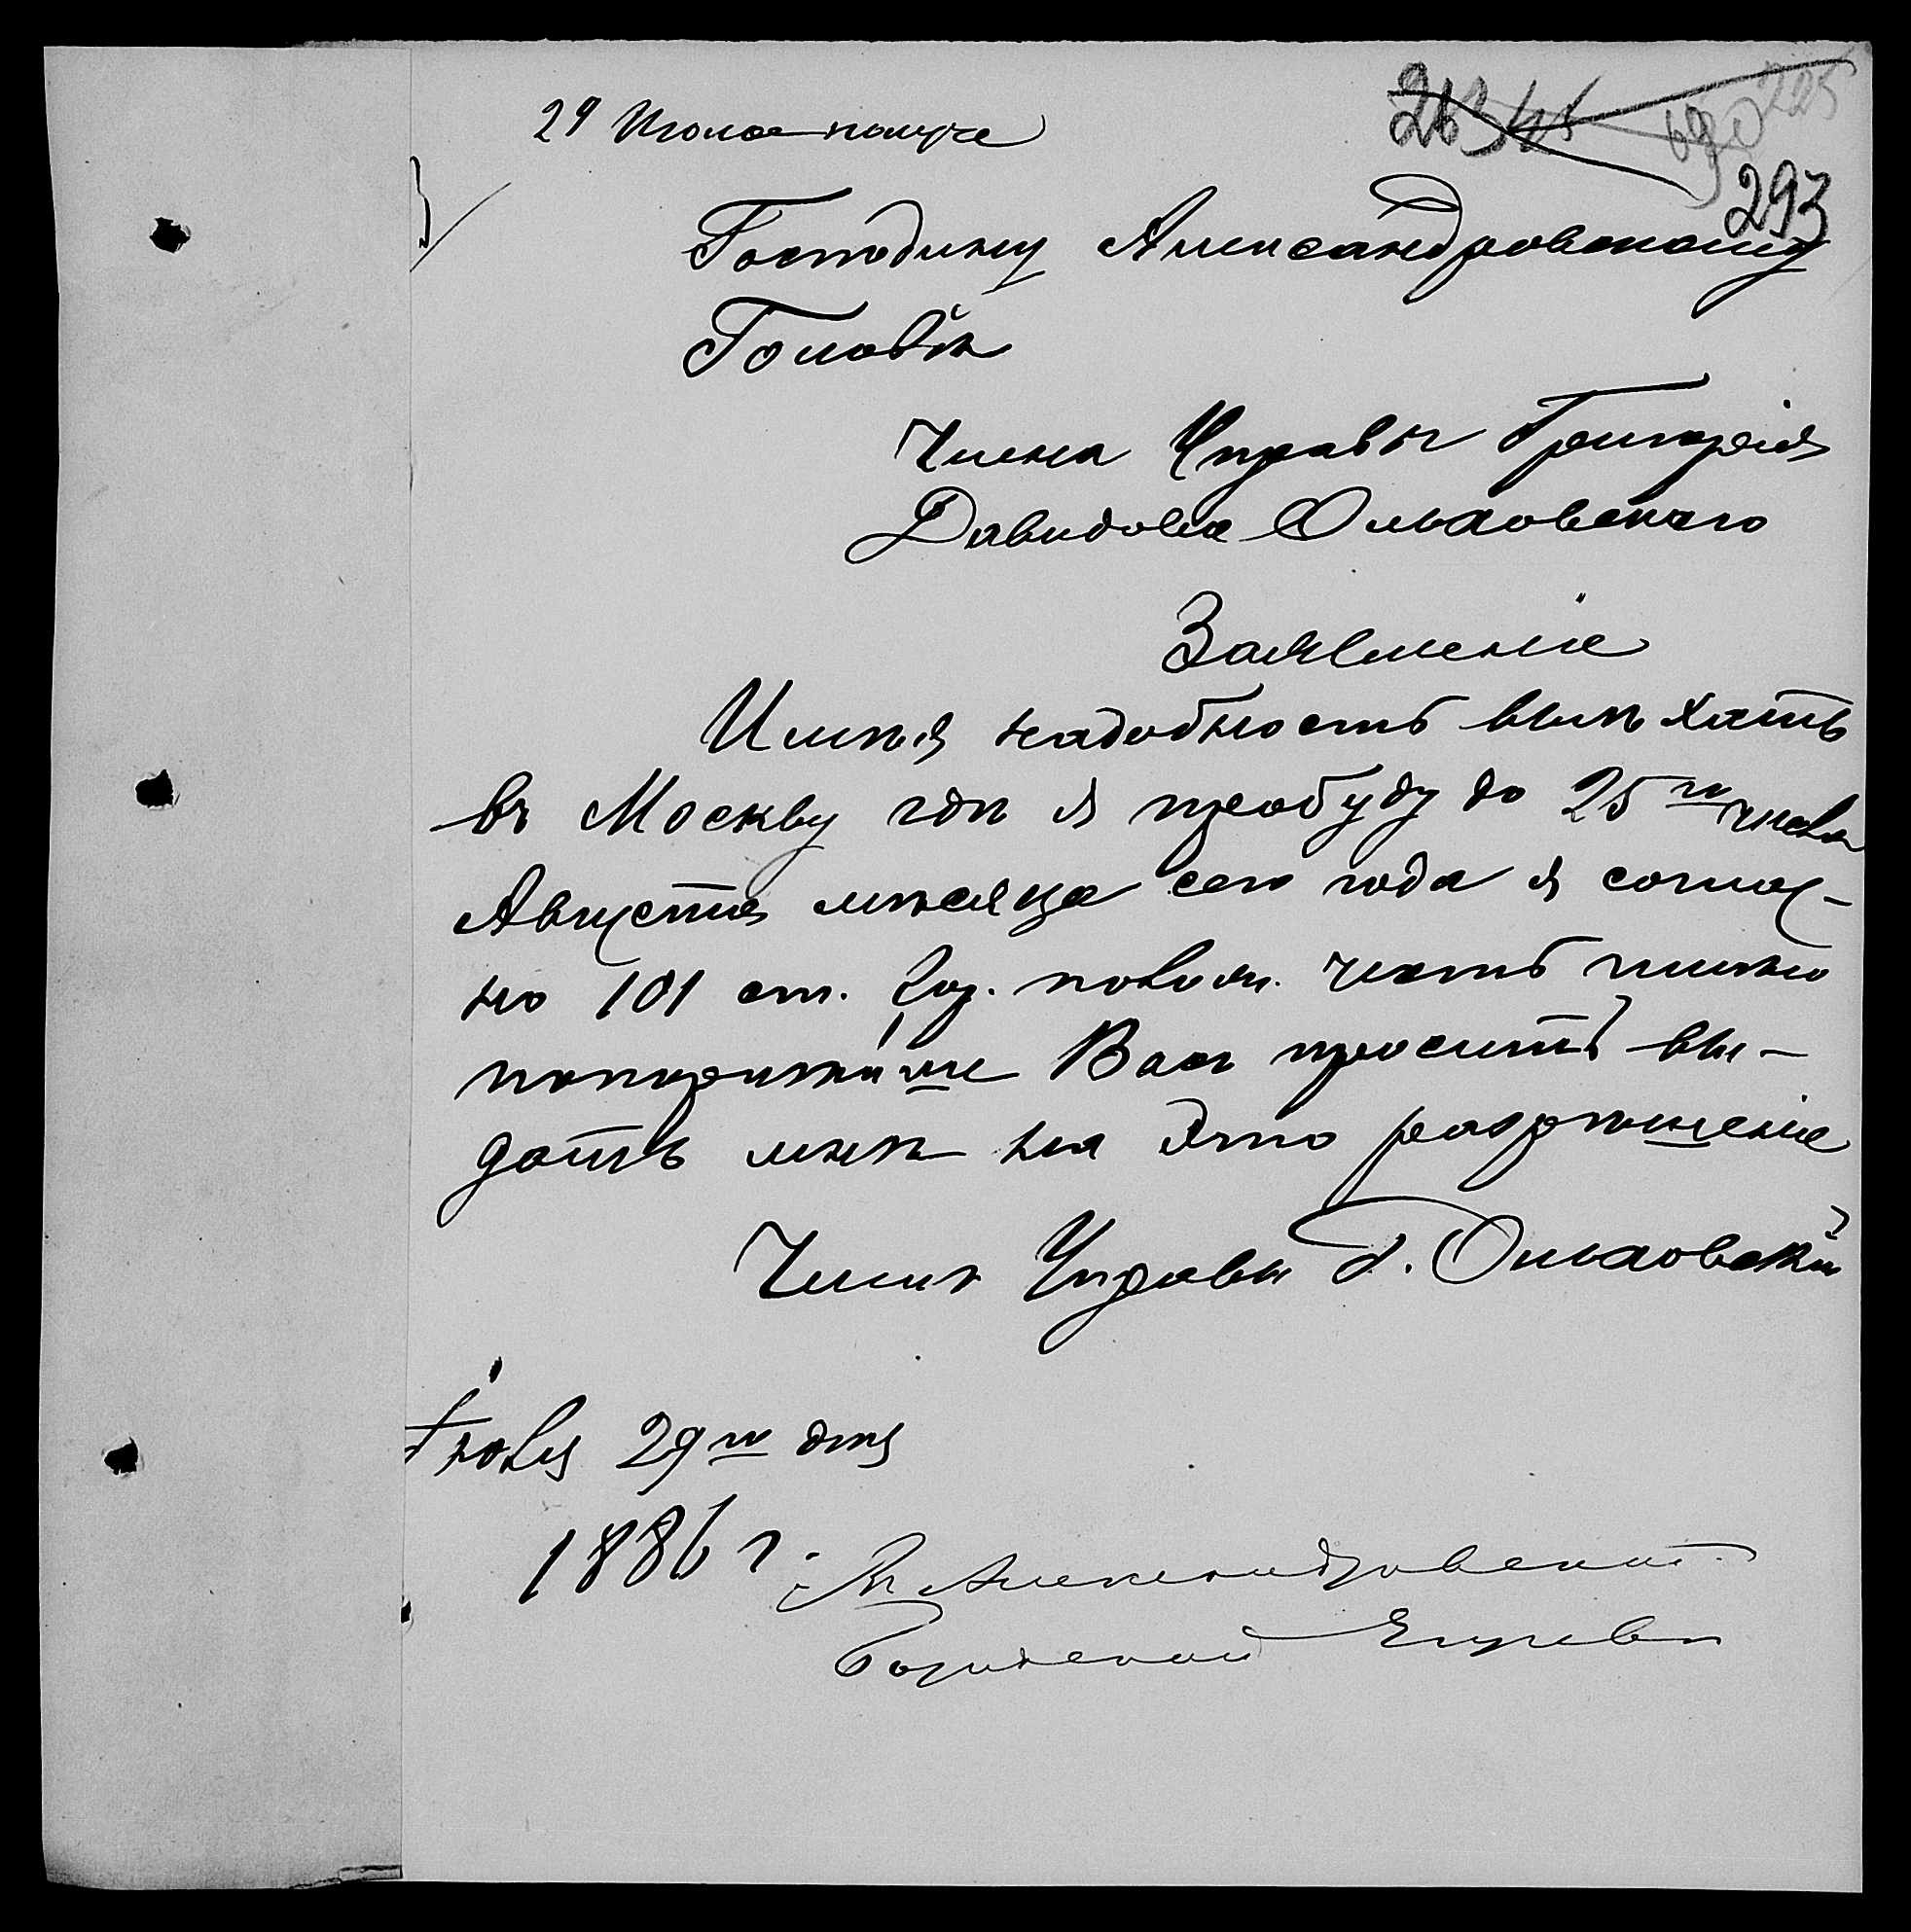 29 Июля получе
263
293
Господину Александровскому
Головѣ
Члена Управы Григорія
Давидова Ольховскаго
Заявленіе
Имѣя надобность выѣхать
въ Москву гдѣ я пробуду до 25го числа
Августа мѣсяца сего года я соглас-
но 101 ст. Гор. полож. честь имѣю
покорнѣйше Васъ просить вы-
дать мнѣ на это разрѣшеніе
Членъ Управы Г. Ольховскій
29го дня
1886 г.
Александровской